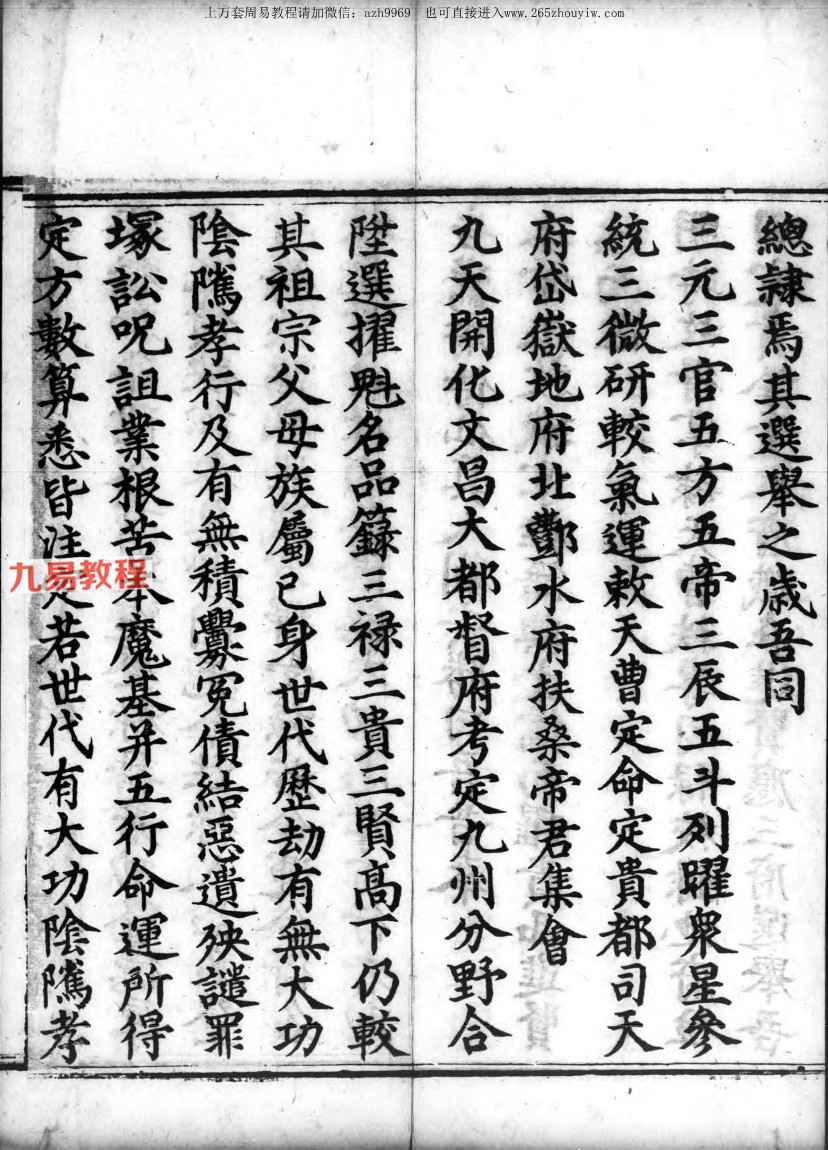 上万套周易教程请加微信：azh9969 也可直接进入www.265zhouyiw.com
總隷焉其選舉之歲吾同
三元三官五方五帝三辰五斗列曜衆星參
統三微研較氣運敕天曹定命定貴都司天
府岱嶽地府北酆水府扶桑帝君集會
九天開化文昌大都督府考定九州分野合
陞選擢魁名品籙三禄三貴三賢高下仍較
其祖宗父母族屬已身世代歷劫有無大功
陰隲孝行及有無積釁冤債結惡遺殃譴罪
塚訟呪詛業根苦本魔基并五行命運所得
定方數算悉皆注定若世代有大功陰隲孝
九易教程